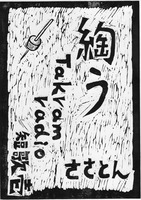 綯う
Takram
radio
短歌壱
ささとん